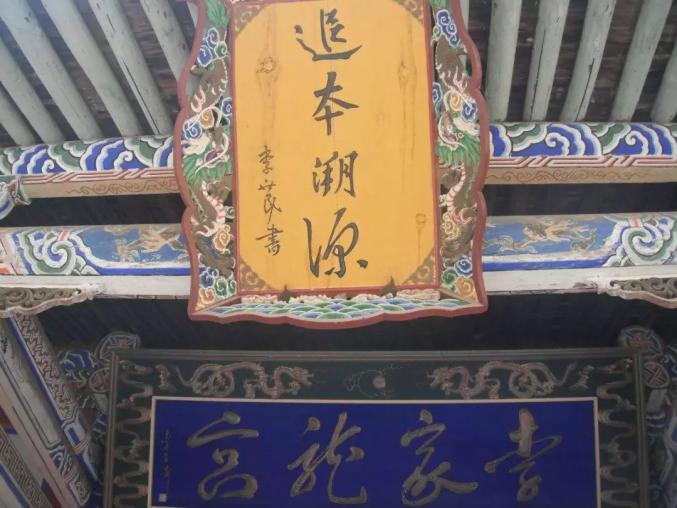 追本溯源
李世民書
李家龍宮